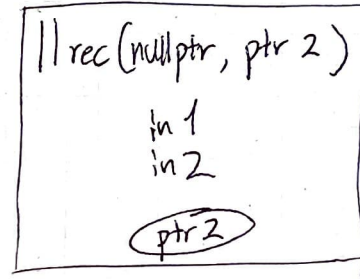 || rec(nullptr, ptr 2)
in 1
in 2
ptr 2